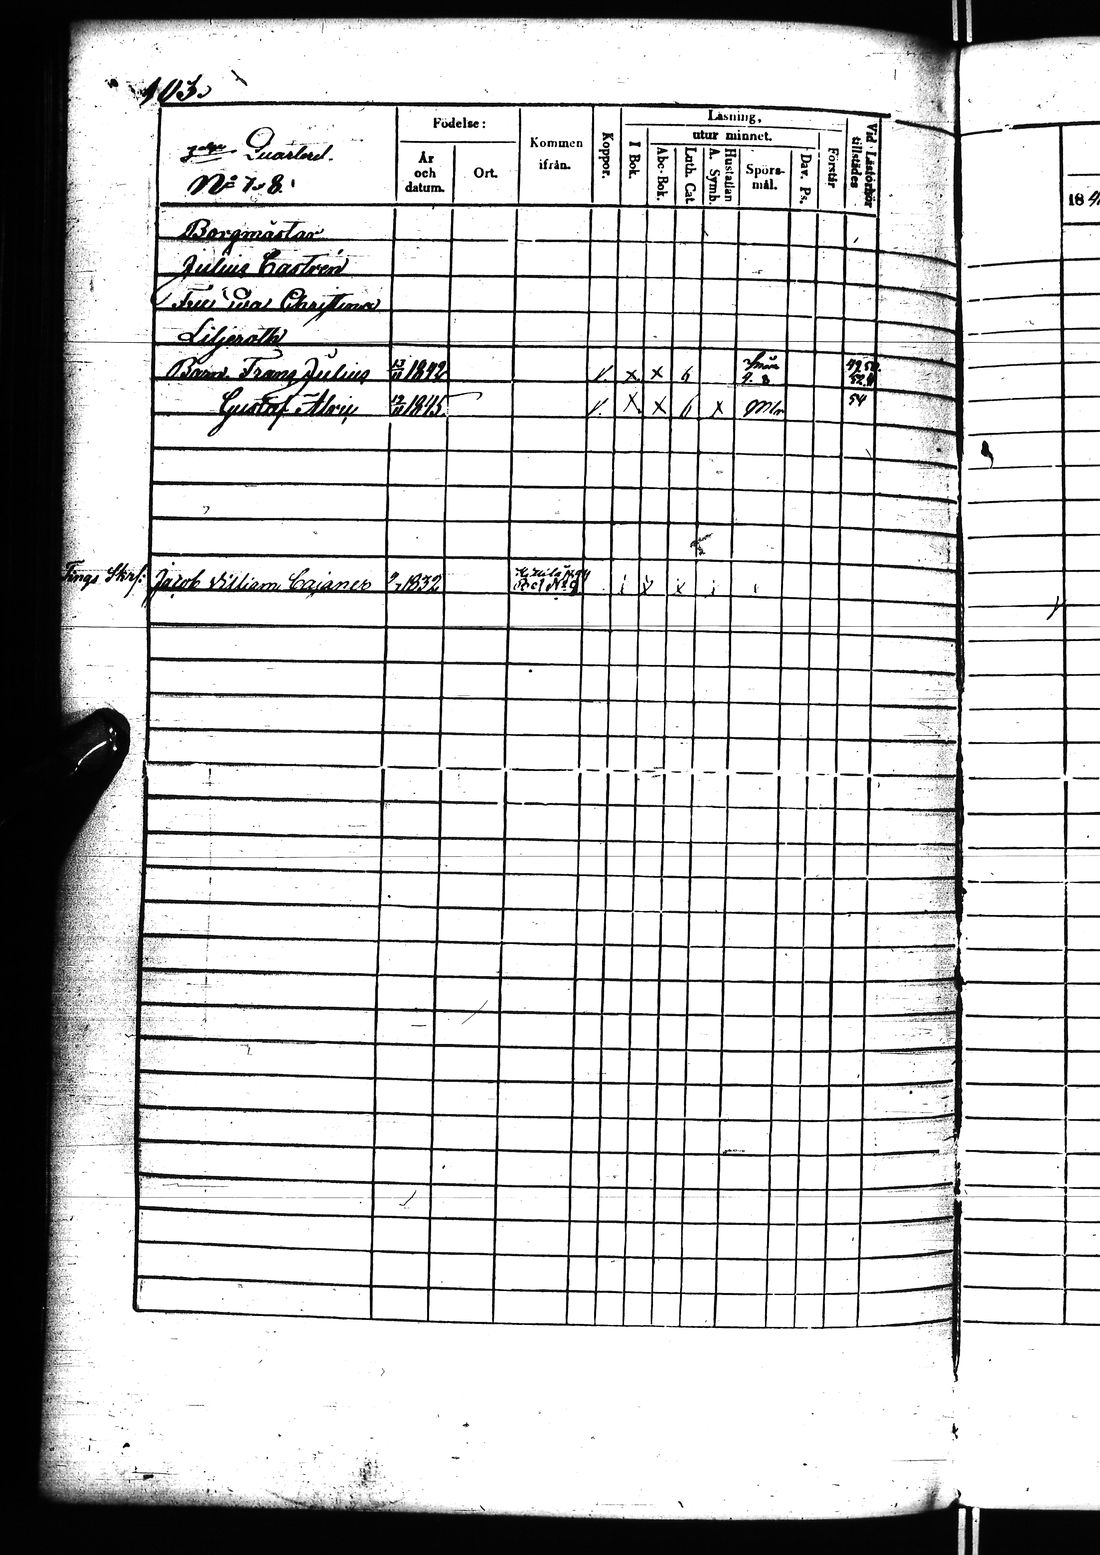 103.
Quarteret.
No 7. 8.
Födelse:
År och datum.
Ort.
Kommen ifrån.
Koppor.
Läsning,
I Bok.
utur minnet.
Abc-Bok.
Luth. Cat.
Hustaflan A. Symb.
Spörs-mål.
Dav. Ps.
Förstår
Vid Läsförhör tillstädes
184
Borgmästar
Julius Castrén
Fru Christina
Liljeroth
Barn. Franz Julius 13/11 1842 v. x x 6
Gustaf Alric 12/11 1845 v. x x 6 x 54
Tings Skrf: Jacob William Cajanes 1832